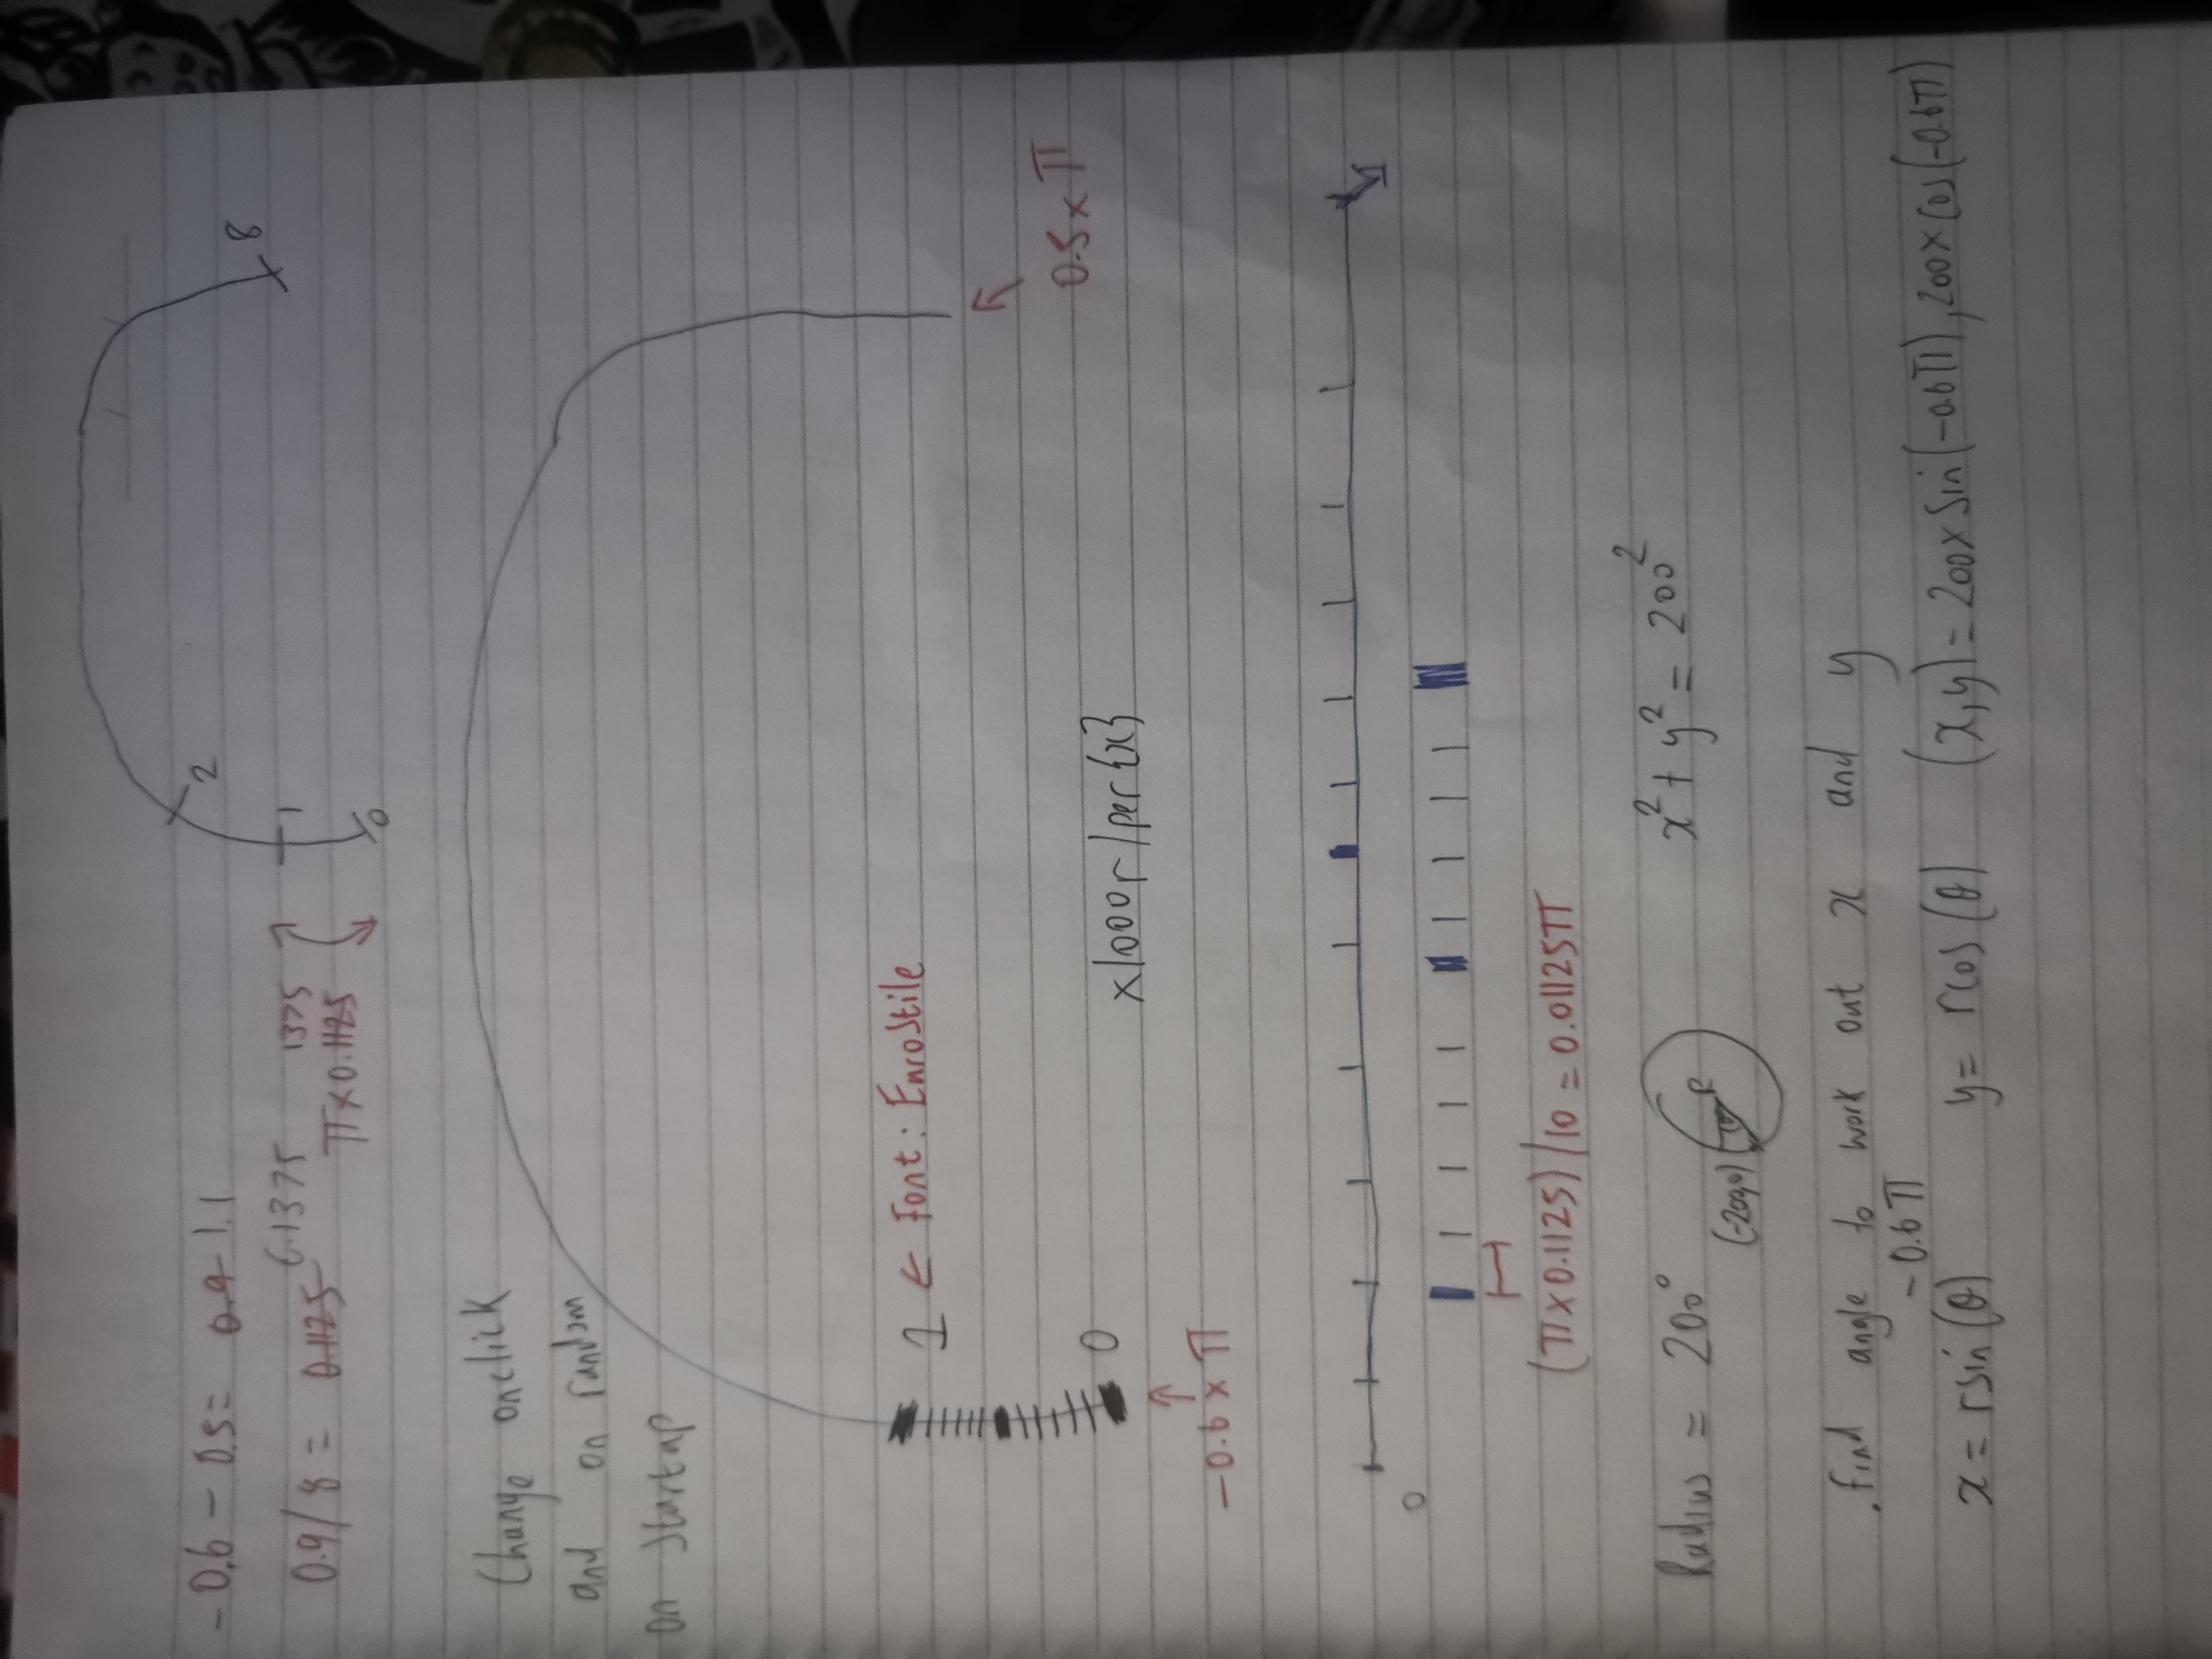 -0.6 - 0.5 = 0.9 1.1
0.9/8 = 0.1125 0.1375
1375
π×0.1125
2
1
0
8
Change onclick
and on random
on Startup
1 ← Font: EuroStile
0
-0.6 × π
x1000r/per{x}
0.5 × π
0
1
(π×0.1125)/10 = 0.01125π
Radius = 200°
(-200,0)
R
x² + y² = 200²
.find angle to work out x and y
-0.6π
x = rsin(θ) y = rcos(θ) (x,y) = 200×sin(-0.6π), 200×cos(-0.6π)